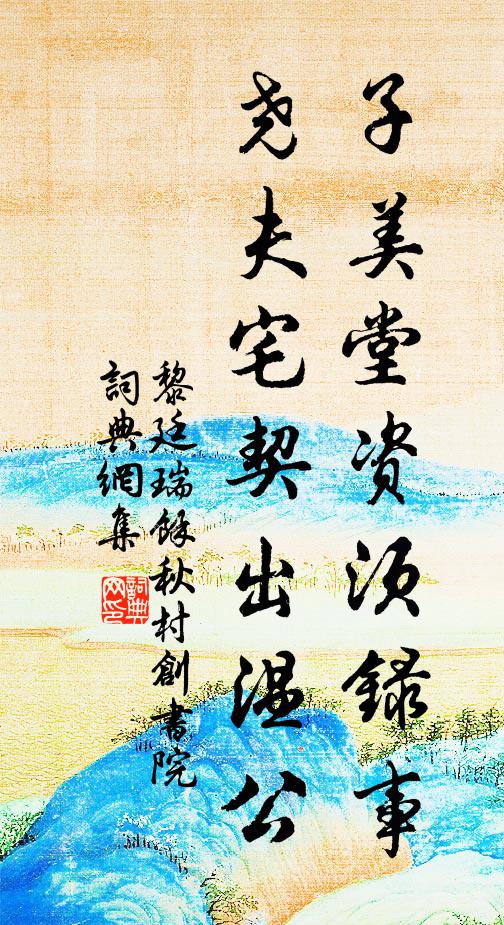 子美堂资须録事
尧夫宅契出温公
黎廷瑞餘秋村創書院
詞典網集
詞典